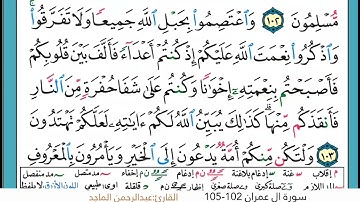 مُّسْلِمُونَ ۝١٠٢ وَٱعْتَصِمُوا۟ بِحَبْلِ ٱللَّهِ جَمِيعًا وَلَا تَفَرَّقُوا۟ ۚ
وَٱذْكُرُوا۟ نِعْمَتَ ٱللَّهِ عَلَيْكُمْ إِذْ كُنتُمْ أَعْدَآءً فَأَلَّفَ بَيْنَ قُلُوبِكُمْ
فَأَصْبَحْتُم بِنِعْمَتِهِۦٓ إِخْوَٰنًا وَكُنتُمْ عَلَىٰ شَفَا حُفْرَةٍ مِّنَ ٱلنَّارِ
فَأَنقَذَكُم مِّنْهَا ۗ كَذَٰلِكَ يُبَيِّنُ ٱللَّهُ لَكُمْ ءَايَٰتِهِۦ لَعَلَّكُمْ تَهْتَدُونَ
۝١٠٣ وَلْتَكُن مِّنكُمْ أُمَّةٌ يَدْعُونَ إِلَى ٱلْخَيْرِ وَيَأْمُرُونَ بِٱلْمَعْرُوفِ
سورة آل عمران 102-105 القارئ: عبدالرحمن الماجد